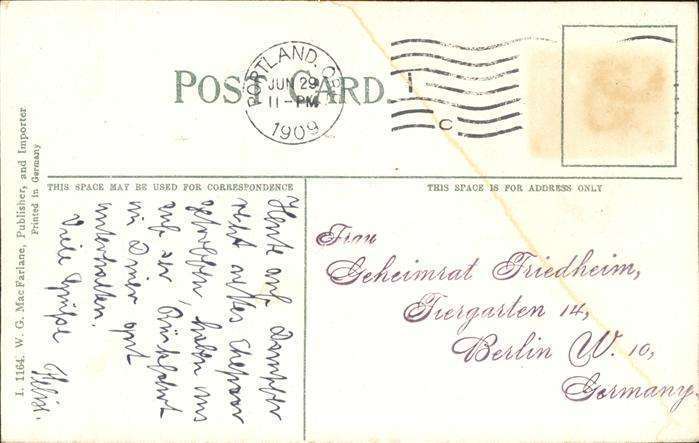 POST CARD.
PORTLAND, OR
JUN 29
11-PM
1909
C
THIS SPACE MAY BE USED FOR CORRESPONDENCE
THIS SPACE IS FOR ADDRESS ONLY
I. 1164. W. G. MacFarlane, Publisher, and Importer
Printed in Germany
Heute auf Dampfer
recht nettes Ehepaar
getroffen, haben uns
auf der Rückfahrt
im Diner gut
unterhalten.
Viele Grüße
Frau
Geheimrat Friedheim,
Tiergarten 14,
Berlin W. 10,
Germany.